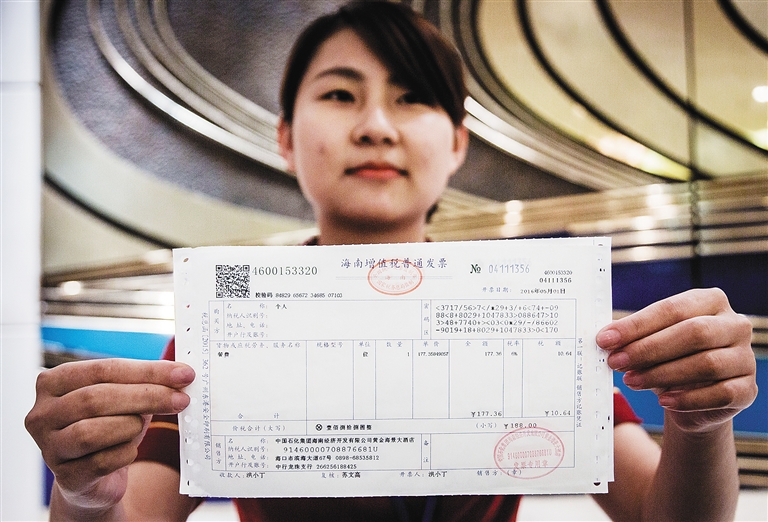 4600153320
海南增值税普通发票
№ 04111356
4600153320
04111356
校验码 84829 03672 34685 07103
开票日期: 2016年05月01日
购买方
名 称: 个人
纳税人识别号:
地 址、电 话:
开户行及账号:
密码区
<3717/56>7</*29+3/+6<74+-09
88<8+8029+1047833>088647>10
3>48+7740+><03<0*29/-/86602
-9019+18+8029+1047833>0<170
货物或应税劳务、服务名称 规格型号 单位 数量 单价 金额 税率 税额
餐费 1 177.35849057 177.36 6% 10.64
合 计 ¥177.36 ¥10.64
价税合计(大写) ⊗壹佰捌拾捌圆整 (小写) ¥188.00
销售方
名 称: 中国石化集团海南经济开发有限公司黄金海景大酒店
纳税人识别号: 91460000708876681U
地 址、电 话: 海口市滨海大道67号 0898-68535812
开户行及账号: 中行龙珠支行 266256188425
备注
收款人: 洪小丁 复核: 苏文高 开票人: 洪小丁 销售方:(章)
第一联:记账联 销售方记账凭证
91460000708876681U
发票专用章